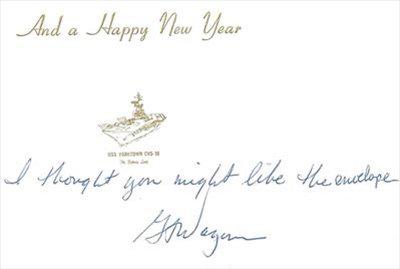 And a Happy New Year
USS YORKTOWN CVS-10
The Fighting Lady
I thought you might like the envelope